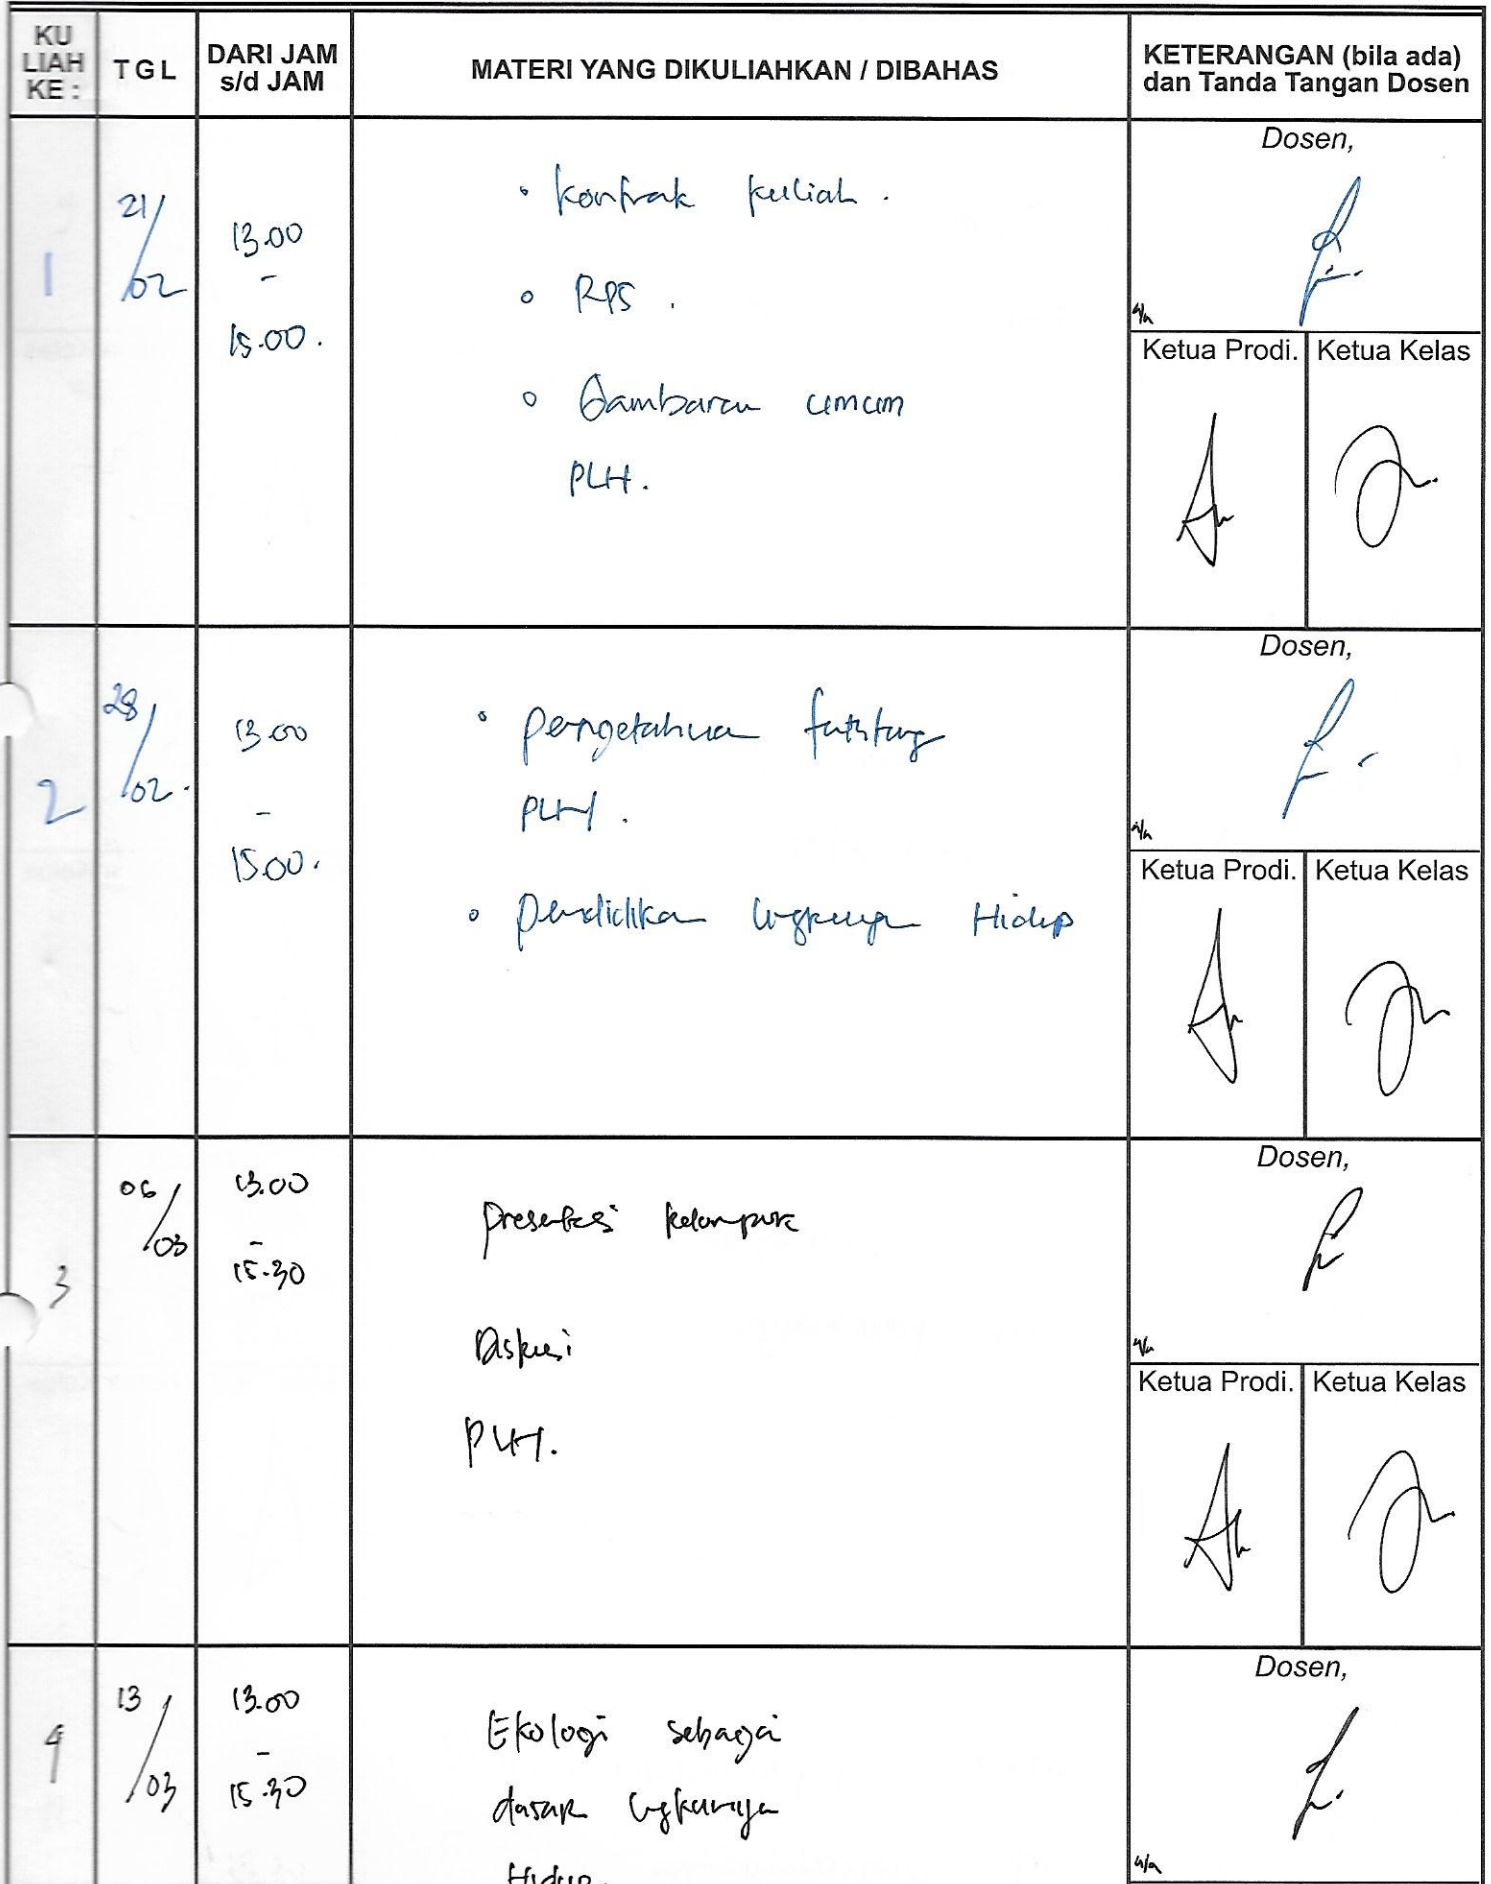 KU LIAH KE :
TGL
DARI JAM s/d JAM
MATERI YANG DIKULIAHKAN / DIBAHAS
KETERANGAN (bila ada) dan Tanda Tangan Dosen
1
21/02
13.00
-
15.00.
• kontrak kuliah.
o RPS.
o Gambaran umum
PLH.
Dosen,
Ketua Prodi.
Ketua Kelas
2
28/02.
13.00
-
15.00.
• pengetahuan tentang
PLH.
o pendidikan lingkungan Hidup
Dosen,
Ketua Prodi.
Ketua Kelas
3
06/03
13.00
-
15.30
presentasi kelompok
Diskusi
PLH.
Dosen,
Ketua Prodi.
Ketua Kelas
4
13/03
13.00
-
15.30
Ekologi sebagai
dasar lingkungan
Hidup.
Dosen,